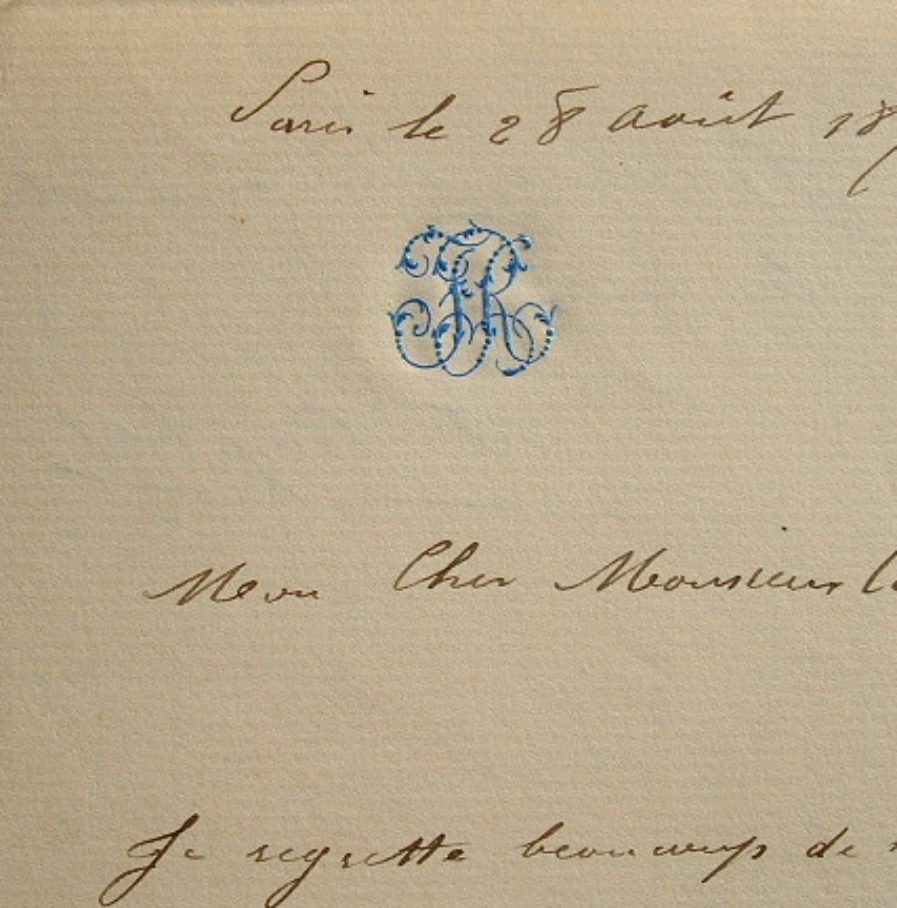 Paris le 28 août 18
Mon Cher Monsieur
Je regrette beaucoup de